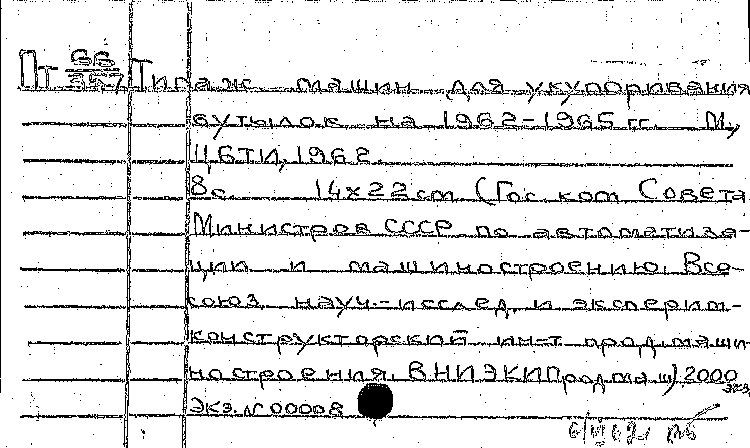 Пт 66/357 Типаж машин для укупоривания
бутылок на 1962-1965 гг. М.,
ЦБТИ, 1962.
8с. 14×22 cm (Гос. ком. Совета
Министров СССР по автоматиза-
ции и машиностроению. Все-
союз. науч.-исслед. и эксперим-
конструкторский ин-т прод.маши
ностроения. ВНИЭКИПродмаш) 2000 экз.
Экз. № 00008